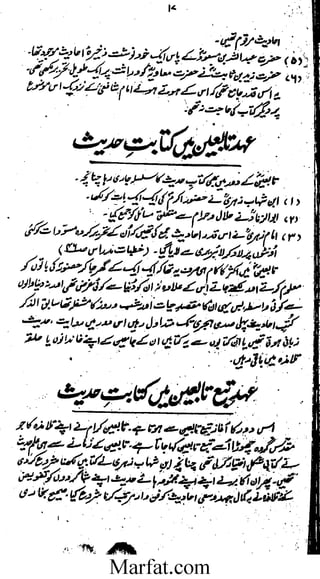 ۱۷
احادیث مرقوم تھیں۔
(۵) حضرت عبداللہ بن مسعودؓ کے پاس ایک خود نوشت ذخیرۂ احادیث موجود تھا۔
(۶) حضرت زید بن ثابتؓ نے حضرت معاویہؓ کو وراثت پر ایک طویل تحریر لکھی تھی۔
یہ اس قدر جامع تھی کہ اس کے ہوتے ہوئے امام شافعیؒ کے نزدیک اس موضوع
پر دیگر کتاب کی حاجت نہ تھی۔
عہد تابعین میں کتابت حدیث
تابعینؒ کے دور میں بھی کتابِ حدیث کا سلسلہ جاری رہا چنانچہ
(۱) ابن شہاب زہریؒ نے حضور اکرمؐ کی ایک ایک بات کو لکھا۔
(۲) ابو الزنادؒ نے حلال و حرام سے متعلق مسائل کو جمع کیا۔
(۳) امام زہریؒ نے اس قدر احادیث جمع کی تھیں کہ ان کے تحریر کردہ مسودات کو کئی
اونٹوں پر لاد کر لائبریری سے لایا گیا۔ (خطبات مدراس ص ۴۶)
تابعینؒ میں اکثر کا کام ہی صرف یہ تھا کہ ایک ایک کے گھر جا کر حضورؐ کی باتوں کو
معلوم کرتے اور لکھتے جاتے اس کے علاوہ نہ ان کو دنیا سے کوئی غرض تھی اور نہ دنیا والوں
سے کوئی واسطہ، بس یہی ان کا مقصدِ حیات اور شب و روز کا مشغلہ تھا سابق الذکر
کتبِ احادیث پہلی صدی ہجری تک متداول رہیں اس دور میں روایت حدیث
زبانی ہوتی تھیں یا ان کتابوں سے یہ کتابیں ان کے جامعین کے اپنے خاندانوں یا حلقہ
تلامذہ میں باقی رہیں۔
عہد تبع تابعین میں کتابت حدیث
اس دور کا آغاز تبع تابعین سے ہوتا ہے۔ تابعین کرام نے اپنے تلامذہ کا جو
مقدس گروہ چھوڑا اسے تبع تابعین کہا جاتا ہے۔ تابعین کے زمانے سے ہی علم حدیث
نے کتابی شکل اختیار کر لی تھی چنانچہ ابن شہاب زہری نے کتابیں لکھنا شروع کر دی
تھیں۔ پھر ان اکابر نے اپنے اپنے مجموعہ ہائے حدیث اپنے شاگردوں کو تفویض
کئے تلامذہ نے بکمال جہد و سعی احادیث کو فن وار مرتب کرنا شروع کیا۔ صحیح بخاری
Marfat.com